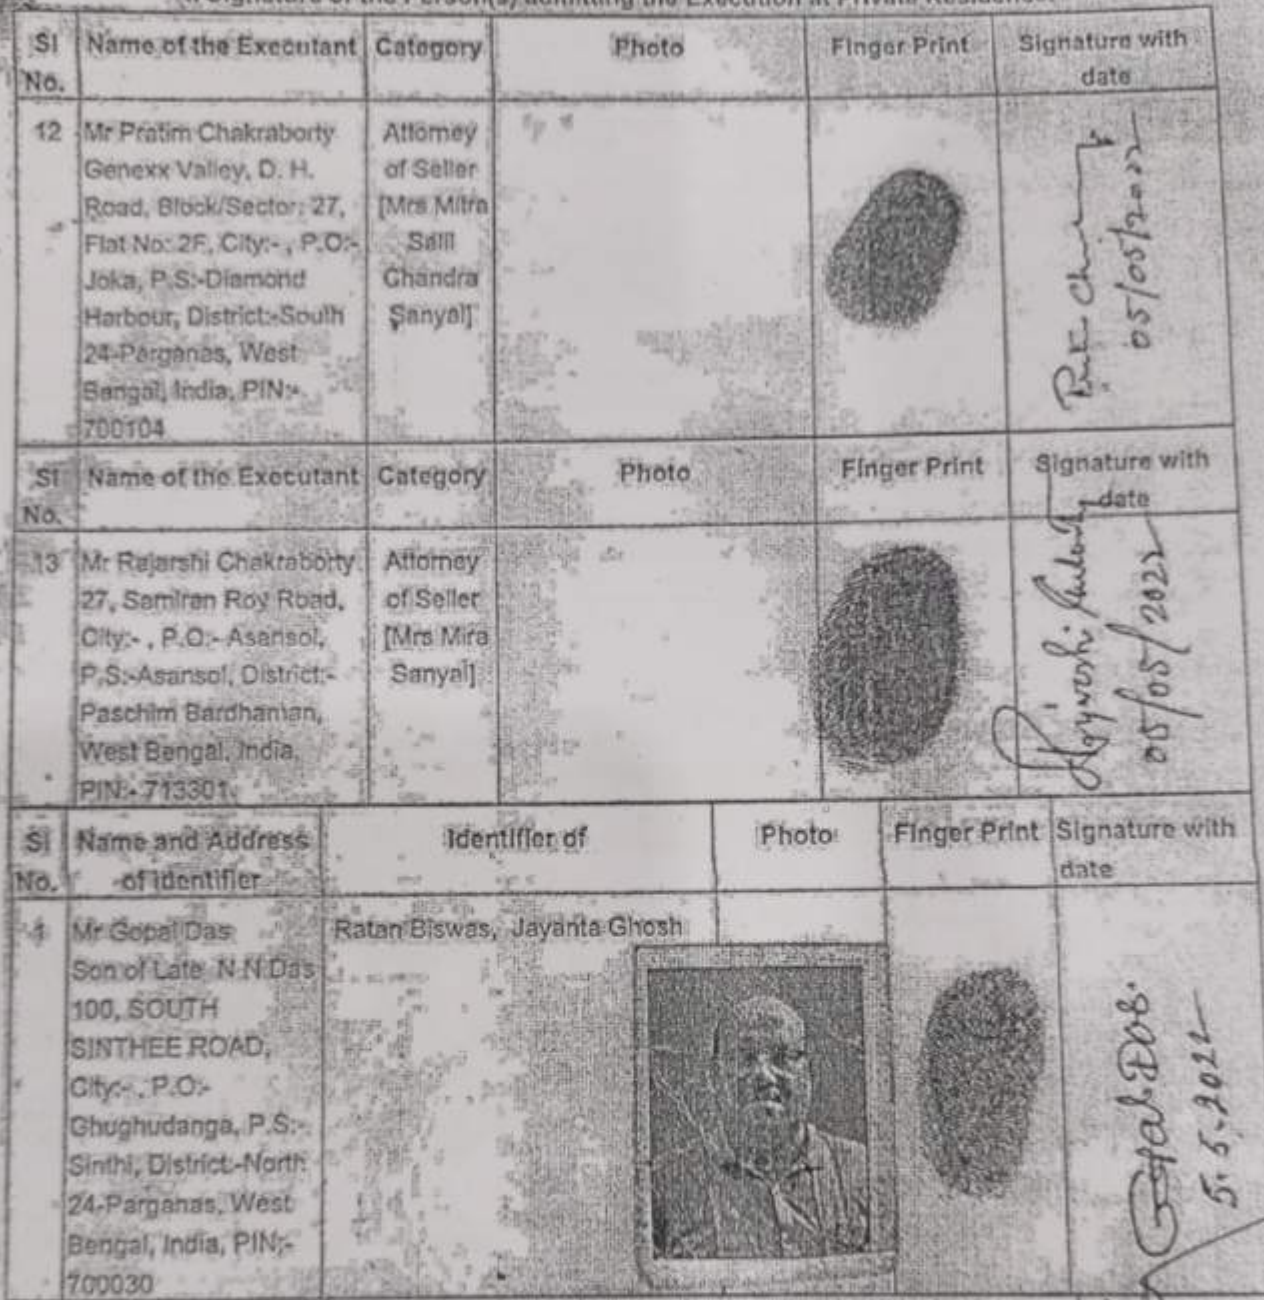 Signature of the Person(s) admitting the Execution at Private Residence.
Sl No. Name of the Executant Category Photo Finger Print Signature with date
12 Mr Pratim Chakraborty
Genexx Valley, D. H.
Road, Block/Sector: 27,
Flat No: 2F, City:- , P.O:-
Joka, P.S:-Diamond
Harbour, District:-South
24-Parganas, West
Bengal, India, PIN:-
700104
Attorney
of Seller
[Mrs Mitra
Salil
Chandra
Sanyal]
05/05/2022
Sl No. Name of the Executant Category Photo Finger Print Signature with date
13 Mr Rajarshi Chakraborty
27, Samiran Roy Road,
City:- , P.O:- Asansol,
P.S:-Asansol, District:-
Paschim Bardhaman,
West Bengal, India,
PIN:- 713301
Attorney
of Seller
[Mrs Mira
Sanyal]
Rajarshi
05/05/2022
Sl No. Name and Address of identifier Identifier of Photo Finger Print Signature with date
1 Mr Gopal Das
Son of Late N N Das
100, SOUTH
SINTHEE ROAD,
City:- , P.O:-
Ghughudanga, P.S:-
Sinthi, District:-North
24-Parganas, West
Bengal, India, PIN:-
700030
Ratan Biswas, Jayanta Ghosh
Gopal Das.
5.5.2022